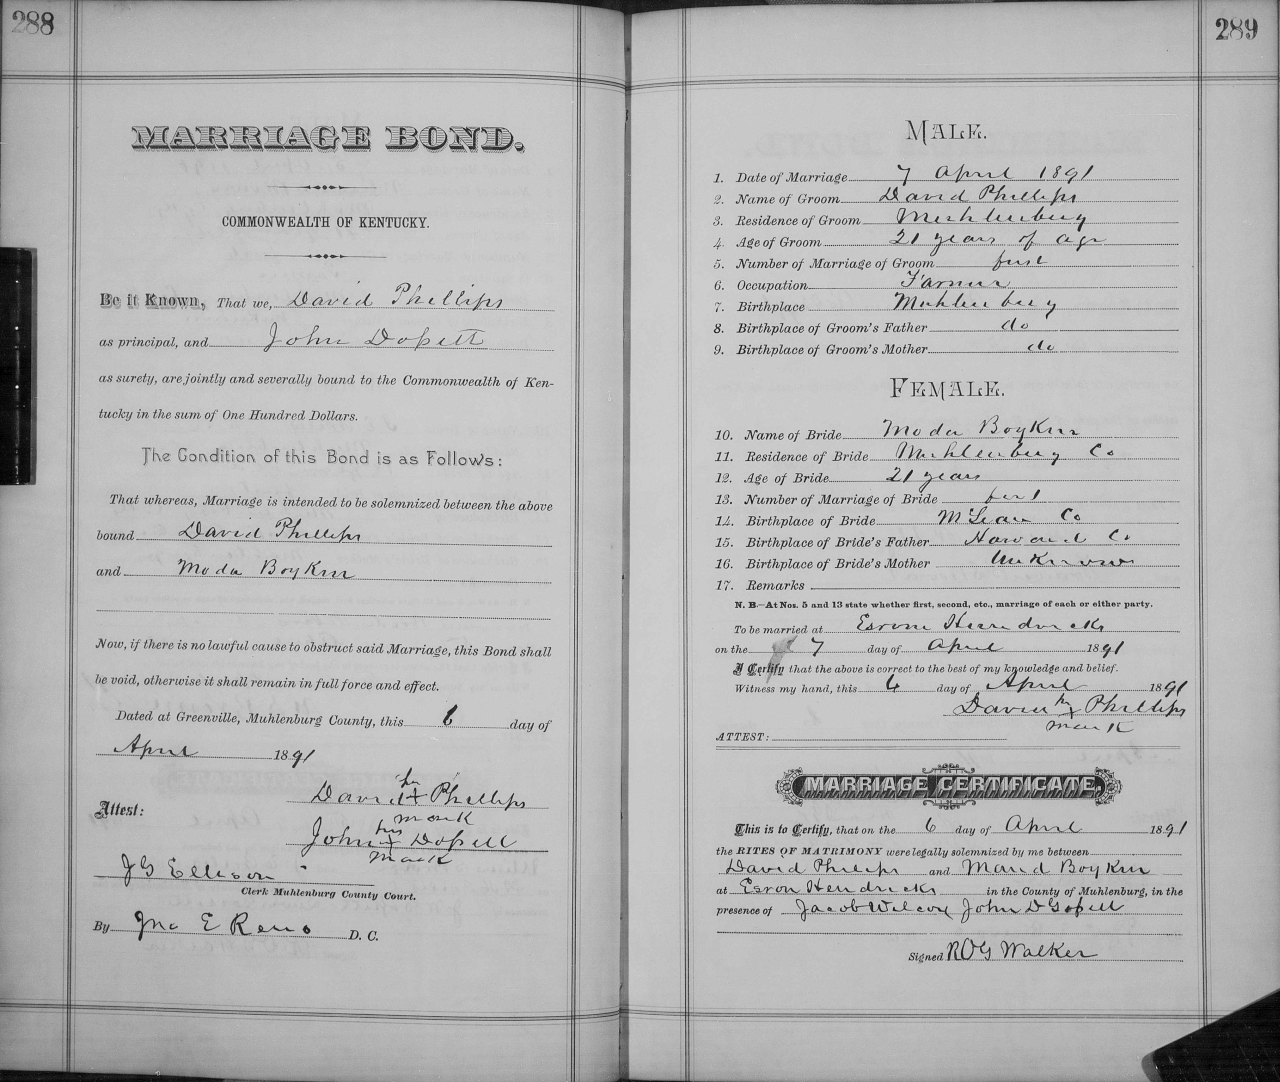 288
MARRIAGE BOND.
COMMONWEALTH OF KENTUCKY.
Be it Known, That we, David Phillips
as principal, and John Dossett
as surety, are jointly and severally bound to the Commonwealth of Ken-
tucky in the sum of One Hundred Dollars.
The Condition of this Bond is as Follows:
That whereas, Marriage is intended to be solemnized between the above
bound David Phillips
and Moda Boykin
Now, if there is no lawful cause to obstruct said Marriage, this Bond shall
be void, otherwise it shall remain in full force and effect.
Dated at Greenville, Muhlenburg County, this 6 day of
April 1891
his
David + Phillips
mark
Attest:
his
John + Dossett
mark
J G Ellison
Clerk Muhlenburg County Court.
By Jno E Reno D. C.
289
MALE.
1. Date of Marriage 7 April 1891
2. Name of Groom David Phillips
3. Residence of Groom Muhlenburg
4. Age of Groom 21 years of age
5. Number of Marriage of Groom first
6. Occupation Farmer
7. Birthplace Muhlenburg
8. Birthplace of Groom's Father do
9. Birthplace of Groom's Mother do
FEMALE.
10. Name of Bride Moda Boykin
11. Residence of Bride Muhlenburg Co
12. Age of Bride 21 years
13. Number of Marriage of Bride first
14. Birthplace of Bride McLean Co
15. Birthplace of Bride's Father Co
16. Birthplace of Bride's Mother Unknown
17. Remarks
N. B.—At Nos. 5 and 13 state whether first, second, etc., marriage of each or either party.
To be married at Esrom Hendricks
on the 7 day of April 1891
I Certify that the above is correct to the best of my knowledge and belief.
Witness my hand, this 6 day of April 1891
his
David x Phillips
mark
ATTEST:
MARRIAGE CERTIFICATE.
This is to Certify, that on the 6 day of April 1891
the RITES OF MATRIMONY were legally solemnized by me between
David Phillips and Maud Boykin
at Esrom Hendricks in the County of Muhlenburg, in the
presence of Jacob Wilcox John D
Signed R O G Walker